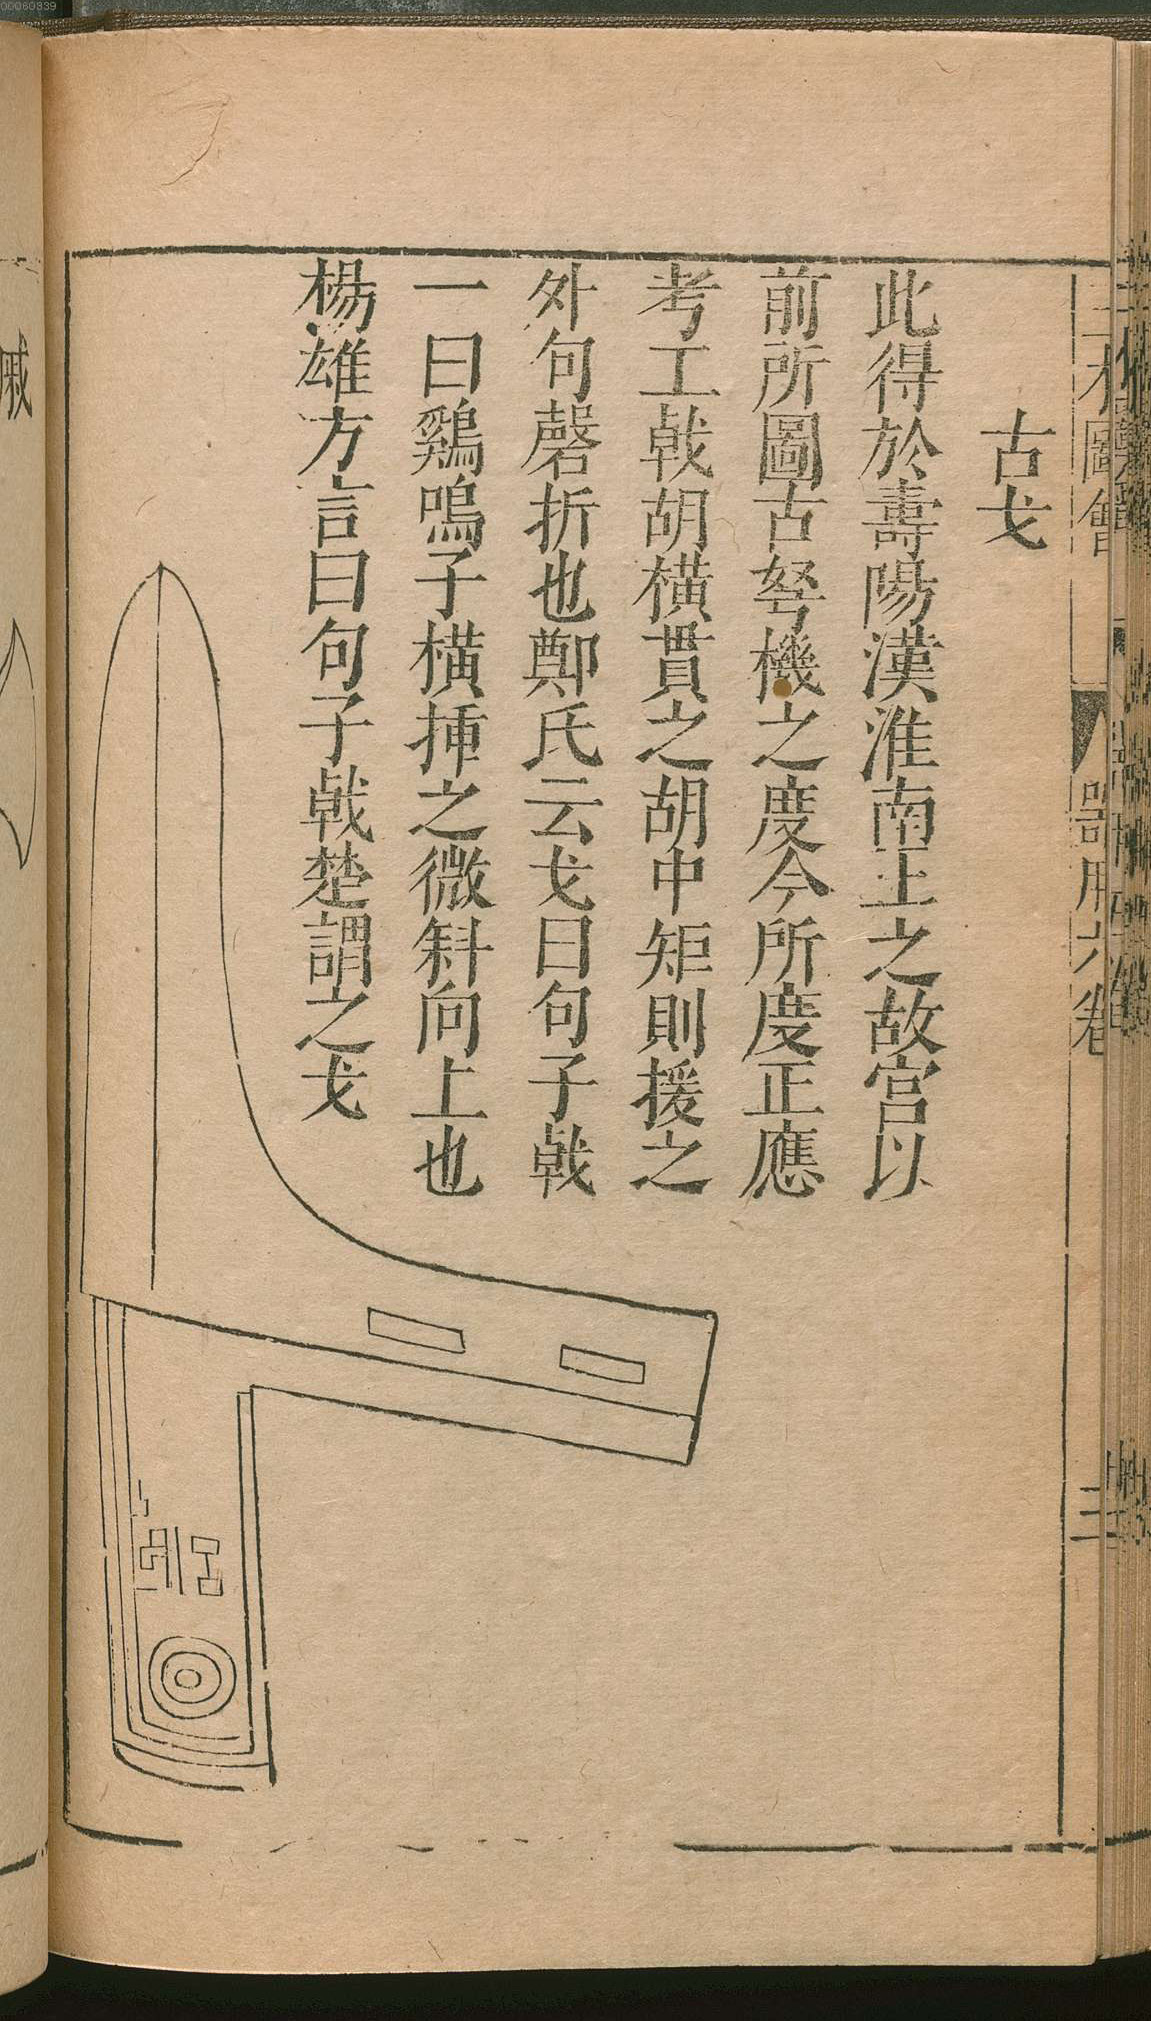 古戈
此得於壽陽漢淮南王之故宮以
前所圖古弩機之度今所度正應
考工戟胡橫貫之胡中矩則援之
外句磬折也鄭氏云戈曰句孑戟
一曰鷄鳴子橫揷之微斜向上也
楊雄方言曰句子戟楚謂之戈
圖會
器用六卷
三
戚
00060839